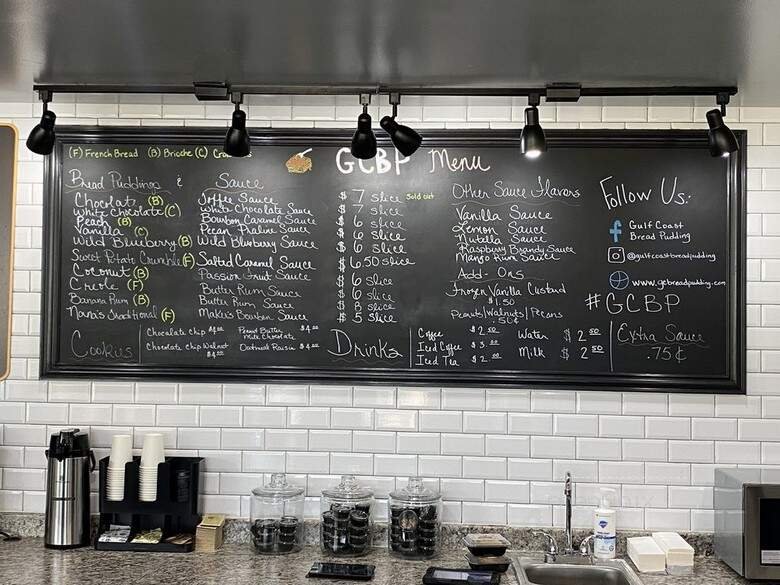 (F) French Bread (B) Brioche (C)
GCBP Menu
Bread Puddings & Sauce
Chocolat (B) Toffee Sauce $ 7 slice Sold out
White Chocolate (C) White Chocolate Sauce $ 7 slice
Peach (B) Bourbon Caramel Sauce $ 6 slice
Vanilla (C) Pecan Praline Sauce $ 6 slice
Wild Blueberry (B) Wild Blueberry Sauce $ 6 slice
Sweet Potato Crumble (F) Salted Caramel Sauce $ 6.50 slice
Coconut (B) Passion Fruit Sauce $ 6 slice
Creole (F) Butter Rum Sauce $ 6 slice
Banana Rum (B) Butter Rum Sauce $ 8 slice
Nana's Traditional (F) Bourbon Sauce $ 5 slice
Other Sauce Flavors
Vanilla Sauce
Lemon Sauce
Nutella Sauce
Raspberry Brandy Sauce
Mango Rum Sauce
Add-Ons
Frozen Vanilla Custard
$1.50
Peanuts/Walnuts/Pecans
.50¢
Follow Us:
f Gulf Coast
Bread Pudding
@gulfcoastbreadpudding
www.gcbreadpudding.com
#GCBP
Extra Sauce
.75¢
Cookies
Chocolate Chip
Chocolate Chip Walnut
Peanut Butter
Milk Chocolate
Oatmeal Raisin
Drinks
Coffee $ 2.00
Iced Coffee $ 3.00
Iced Tea $ 2.00
Water $ 2.00
Milk $ 2.50